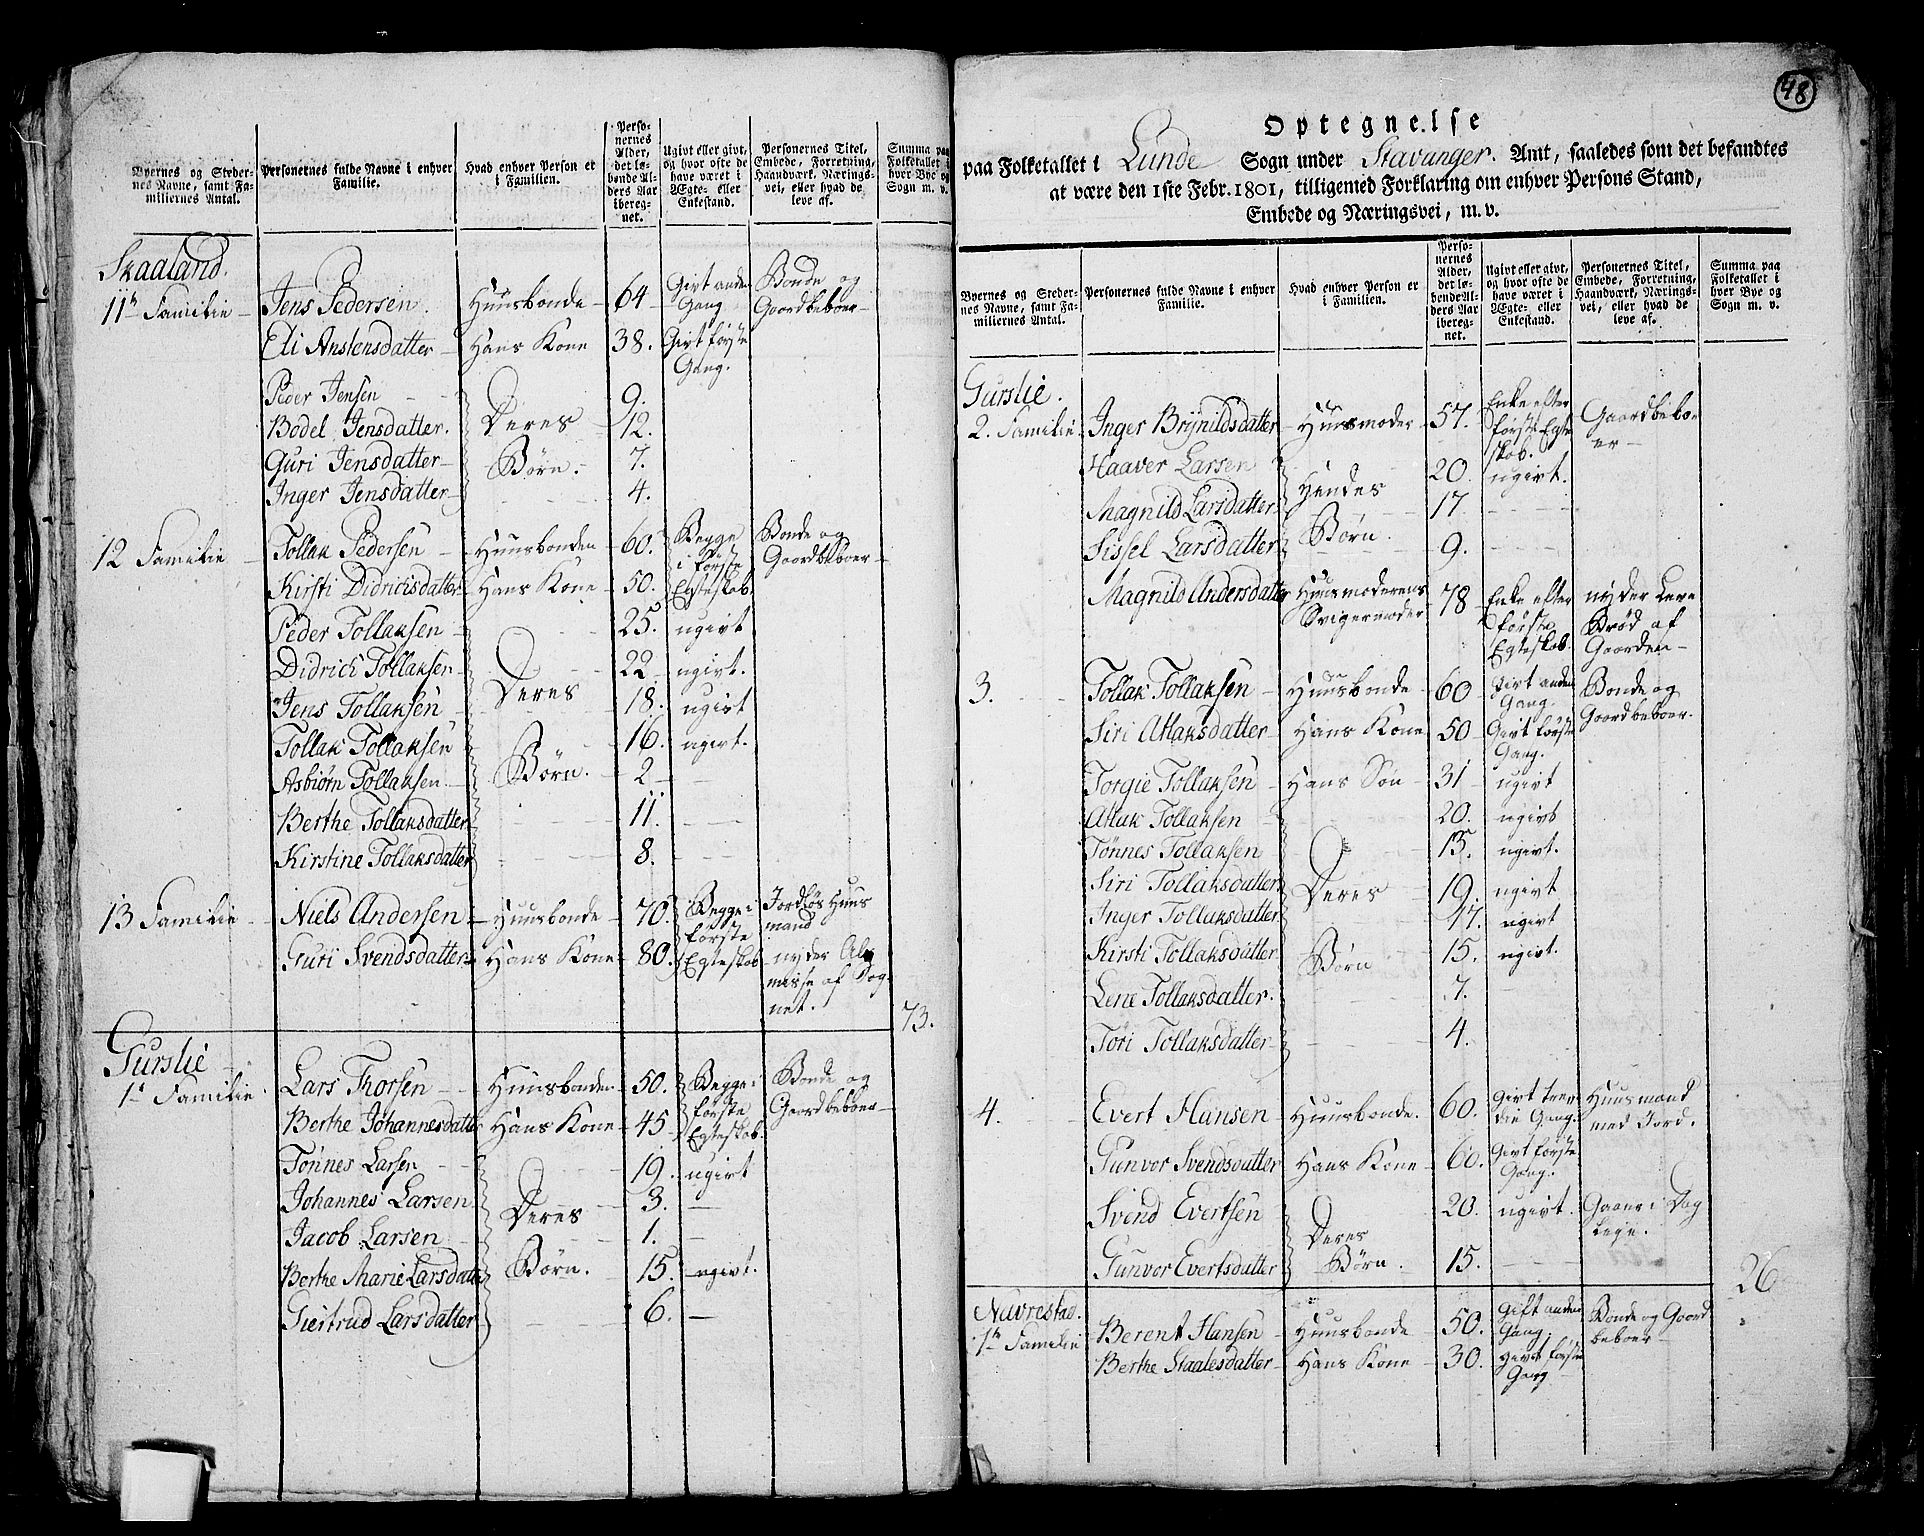 Byernes og Steder-
nes Navne, samt Fa-
miliernes Antal.
Personernes fulde Navne i enhver
Familie.
Hvad enhver Person er
i Familien.
Perso-
nernes
Alder,
det lø-
bende Al-
ders Aar
ibereg-
net.
Ugivt eller givt,
og hvor ofte de
have været i
Ægte- eller
Enkestand.
Personernes Titel,
Embede, Forretning,
Haandværk, Nærings-
vei, eller hvad de
leve af.
Summa paa
Folketallet i
hver Bye og
Sogn m. v.
Skaaland.
11te Familie - Jens Pedersen. Huusbonde - 64 - Givt anden Gang Bonde og Gaardbeboer -
Eli Anstensdatter - Hans Kone 38. Givt første Gang.
Peder Jensen - - 9.
Bodel Jensdatter. Deres 12.
Guri Jensdatter - Børn. - 7.
Inger Jensdatter - 4.
12 Familie - Tollak Pedersen - Huusbonden - 60. Begge i første Egteskab Bonde og Gaardbeboer -
Kirsti Didricisdatter Hans Kone - 50.
Peder Tollaksen - 25. ugivt
Didrich Tollaksen - 22 - ugivt.
Jens Tollaksen - Deres 18. ugivt
Tollak Tollaksen 16. ugivt.
Asbiørn Tollaksen - Børn. - 2 -
Berthe Tollaksdatter 11.
Kirstine Tollaksdatter 8.
13 Familie - Niels Andersen - Huusbonde - 70. Begge i første Egteskab Jordløs Huus mand
Guri Svendsdatter Hans Kone - 80. nyder Almisse af Sognet.
73.
Gurslie
1te Familie. Lars Thorsen - Huusbonden - 50. Begge i første Egteskab. Bonde og Gaardbeboer -
Berthe Johannesdatter Hans Kone - 45 -
Tønnes Larsen - - 19. ugivt
Johannes Larsen Deres 3. -
Jacob Larsen 1. -
Berthe Marie Larsdatter Børn. - 15. - ugivt.
Giertrud Larsdatter 6. -
48
Optegnelse
paa Folketallet i Lunde Sogn under Stavanger. Amt, saaledes som det befandtes
at være den 1ste Febr. 1801, tilligemed Forklaring om enhver Persons Stand,
Embede og Næringsvei, m. v.
Byernes og Steder-
nes Navne, samt Fa-
miliernes Antal.
Personernes fulde Navne i enhver
Familie.
Hvad enhver Person er
i Familien.
Perso-
nernes
Alder,
det lø-
bende Al-
ders Aar
ibereg-
net.
Ugivt eller givt,
og hvor ofte de
have været i
Ægte- eller
Enkestand.
Personernes Titel,
Embede, Forretning,
Haandværk, Nærings-
vei, eller hvad de
leve af.
Summa paa
Folketallet i
hver Bye og
Sogn m. v.
Gurslie.
2. Familie Inger Brijnildsdatter Huusmoder - 57. Enke efter første Egteskab. Gaardbeboer -
Haaver Larsen 20. ugivt.
Magnild Larsdatter Hendes 17 -
Sissel Larsdatter Børn. 9. -
Magnild Andersdatter Huusmoderens Svigermoder 78 Enke efter første Egteskab. nyder Leve Brød af Gaarden -
3. Tollak Tollaksen - Huusbonde - 60 Givt anden Gang. Bonde og Gaardbeboer.
Siri Atlaksdatter Hans Kone 50 - Givt første Gang.
Torgie Tollaksen - Hans Søn - 31 - ugivt
Atlak Tollaksen 20. ugivt
Tønnes Tollaksen 15. ugivt.
Siri Tollaksdatter Deres 19. ugivt
Inger Tollaksdatter 17. ugivt
Kirsti Tollaksdatter Børn 15. ugivt.
Lene Tollaksdatter. 7.
Tori Tollaksdatter 4.
4. Evert Hansen - Huusbonde. 60. Givt tredie Gang. Huusmand med Jord.
Gunvor Svendsdatter Hans Kone - 60. Givt første Gang.
Svend Evertsen Deres 20. ugivt. Gaaer i Dag Leje.
Gunvor Evertsdatter Børn. 15.
26
1te Familie Berent Hansen - Huusbonde - 50. Gift anden Gang. Bonde og Gaardbeboer -
Berthe Staalesdatter - Hans Kone - 30. Givt første Gang